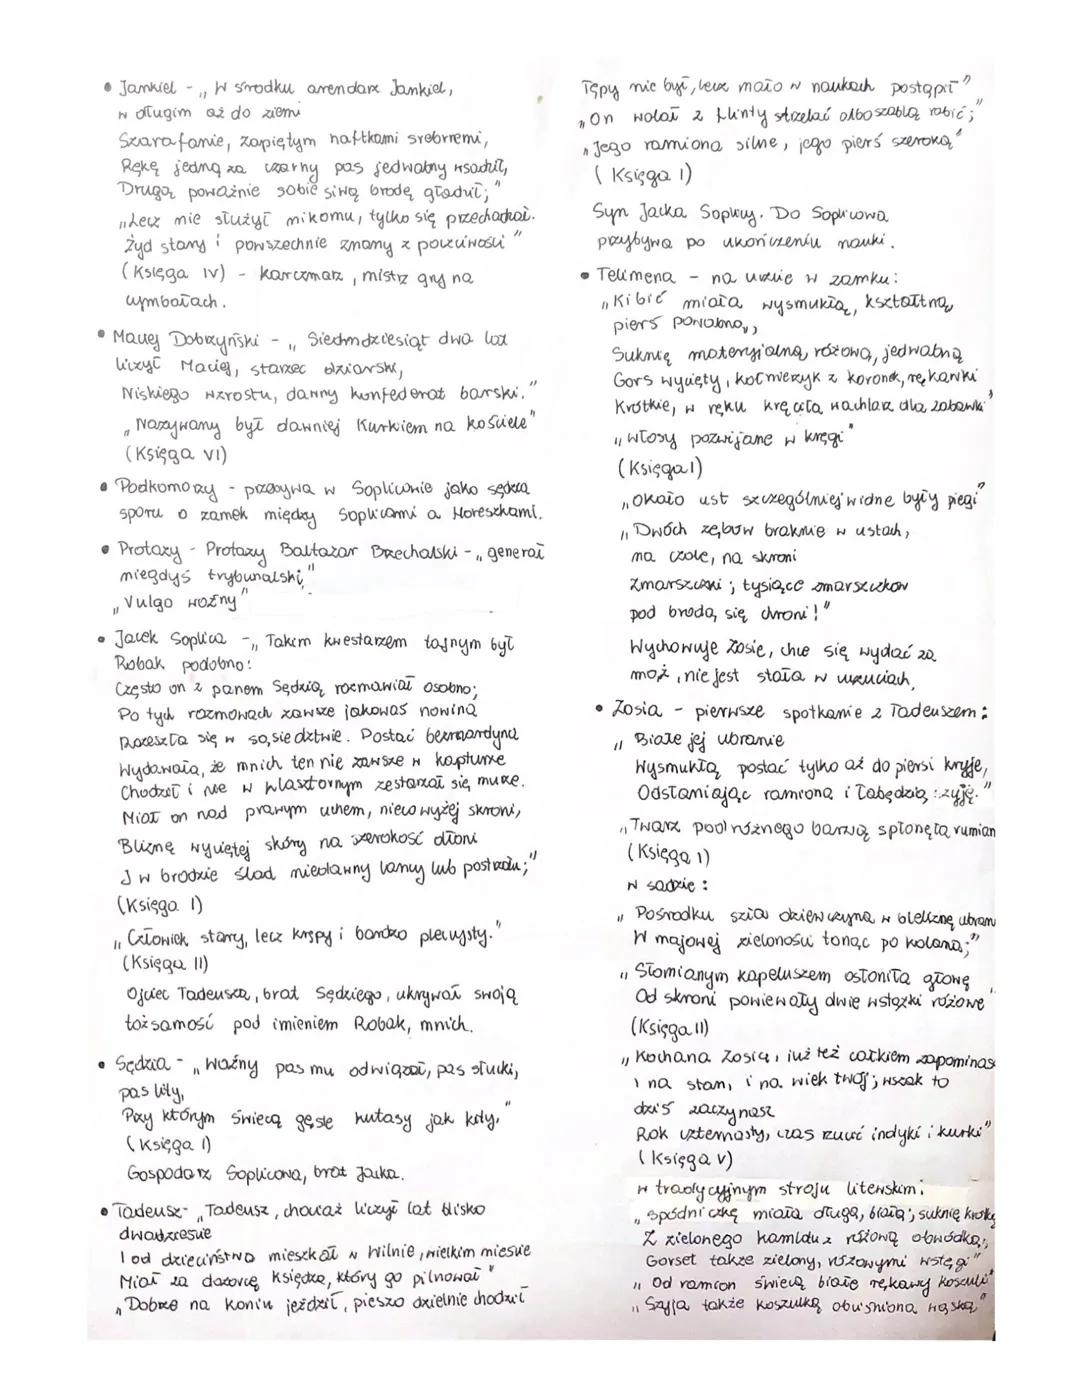 • Jankiel - „ W środku arendarz Jankiel,
w długim aż do ziemi
Szarafanie, zapiętym haftkami srebrnemi,
Rękę jedną za czarny pas jedwabny wsadził,
Drugą poważnie sobie siwą brodę gładził;"
„Lecz nie służył nikomu, tylko się przechadzał.
Żyd stary i powszechnie znany z poczciwości "
(Księga IV) - karczmarz, mistrz gry na
cymbałach.
• Maciej Dobrzyński - „ Siedmdziesiąt dwa lat
liczył Maciej, starzec dziarski,
Niskiego wzrostu, dawny konfederat barski."
„ Nazywany był dawniej Kurkiem na kościele"
(Księga VI)
• Podkomorzy - przebywa w Soplicowie jako sędzia
sporu o zamek między Soplicami a Horeszkami.
• Protazy - Protazy Baltazar Brzechalski -„ generał
niegdyś trybunalski,"
„ Vulgo woźny"
• Jacek Soplica -„ Takim kwestarzem tajnym był
Robak podobno:
Często on z panem Sędzią rozmawiał osobno;
Po tych rozmowach zawsze jakowaś nowina
Rozeszła się w sąsiedztwie. Postać bernardyna
Wydawała, że mnich ten nie zawsze w kapturze
Chodził i nie w klasztornym zestarzał się murze.
Miał on nad prawym uchem, nieco wyżej skroni,
Bliznę wyciętej skóry na szerokość dłoni
I w brodzie ślad niedawny lancy lub postrzału;"
(Księga I)
„ Człowiek stary, lecz krępy i bardzo pleczysty."
(Księga II)
Ojciec Tadeusza, brat Sędziego, ukrywał swoją
tożsamość pod imieniem Robak, mnich.
• Sędzia - „ Woźny pas mu odwiązał, pas słucki,
pas lity,
Przy którym świecą gęste kutasy jak kity,"
(Księga I)
Gospodarz Soplicowa, brat Jacka.
• Tadeusz- „Tadeusz, chociaż liczył lat blisko
dwadzieście
I od dzieciństwa mieszkał w Wilnie, wielkim mieście
Miał za dozorcę księdza, który go pilnował"
„ Dobrze na koniu jeździł, pieszo dzielnie chodził
Tępy nie był, lecz mało w naukach postąpił"
„On wolał z flinty strzelać albo szablą robić;"
„ Jego ramiona silne, jego pierś szeroką"
(Księga I)
Syn Jacka Soplicy. Do Soplicowa
przybywa po ukończeniu nauki.
• Telimena - na uczcie w zamku:
„ Kibić miała wysmukłą, kształtną,
pierś powabną,,
Suknię materyjalną, różową, jedwabną
Gors wycięty, kołnierzyk z koronek, rękawki
Krótkie, w ręku kręciła wachlarz dla zabawki"
„ włosy pozwijane w kręgi"
(Księga I)
„Około ust szczególniej widne były piegi"
„ Dwóch zębów braknie w ustach,
na czole, na skroni
Zmarszczki; tysiące zmarszczków
pod brodą się chroni!"
Wychowuje Zosię, chce się wydać za
mąż, nie jest stała w uczuciach.
• Zosia - pierwsze spotkanie z Tadeuszem:
„ Białe jej ubranie
Wysmukłą postać tylko aż do piersi kryje,
Odsłaniając ramiona i łabędzią szyję."
„Twarz podróżnego barwą spłonęła rumian
(Księga I)
w sadzie:
„ Pośrodku szła dziewczyna w bieliznę ubran
W majowej zieloności tonąc po kolana;"
„ Słomianym kapeluszem osłoniła głowę
Od skroni powiewały dwie wstążki różowe"
(Księga II)
„ Kochana Zosiu, już też całkiem zapominasz
I na stan, i na wiek twój; wszak to
dziś zaczynasz
Rok czternasty, czas rzucić indyki i kurki"
(Księga V)
w tradycyjnym stroju litewskim:
„ Spódniczkę miała długą, białą; suknię krótką
Z zielonego kamlotu z różową obwódką;
Gorset także zielony, różowymi wstęgi"
„ Od ramion świecą białe rękawy koszuli"
„ Szyja także koszulką obciśniona wąską"